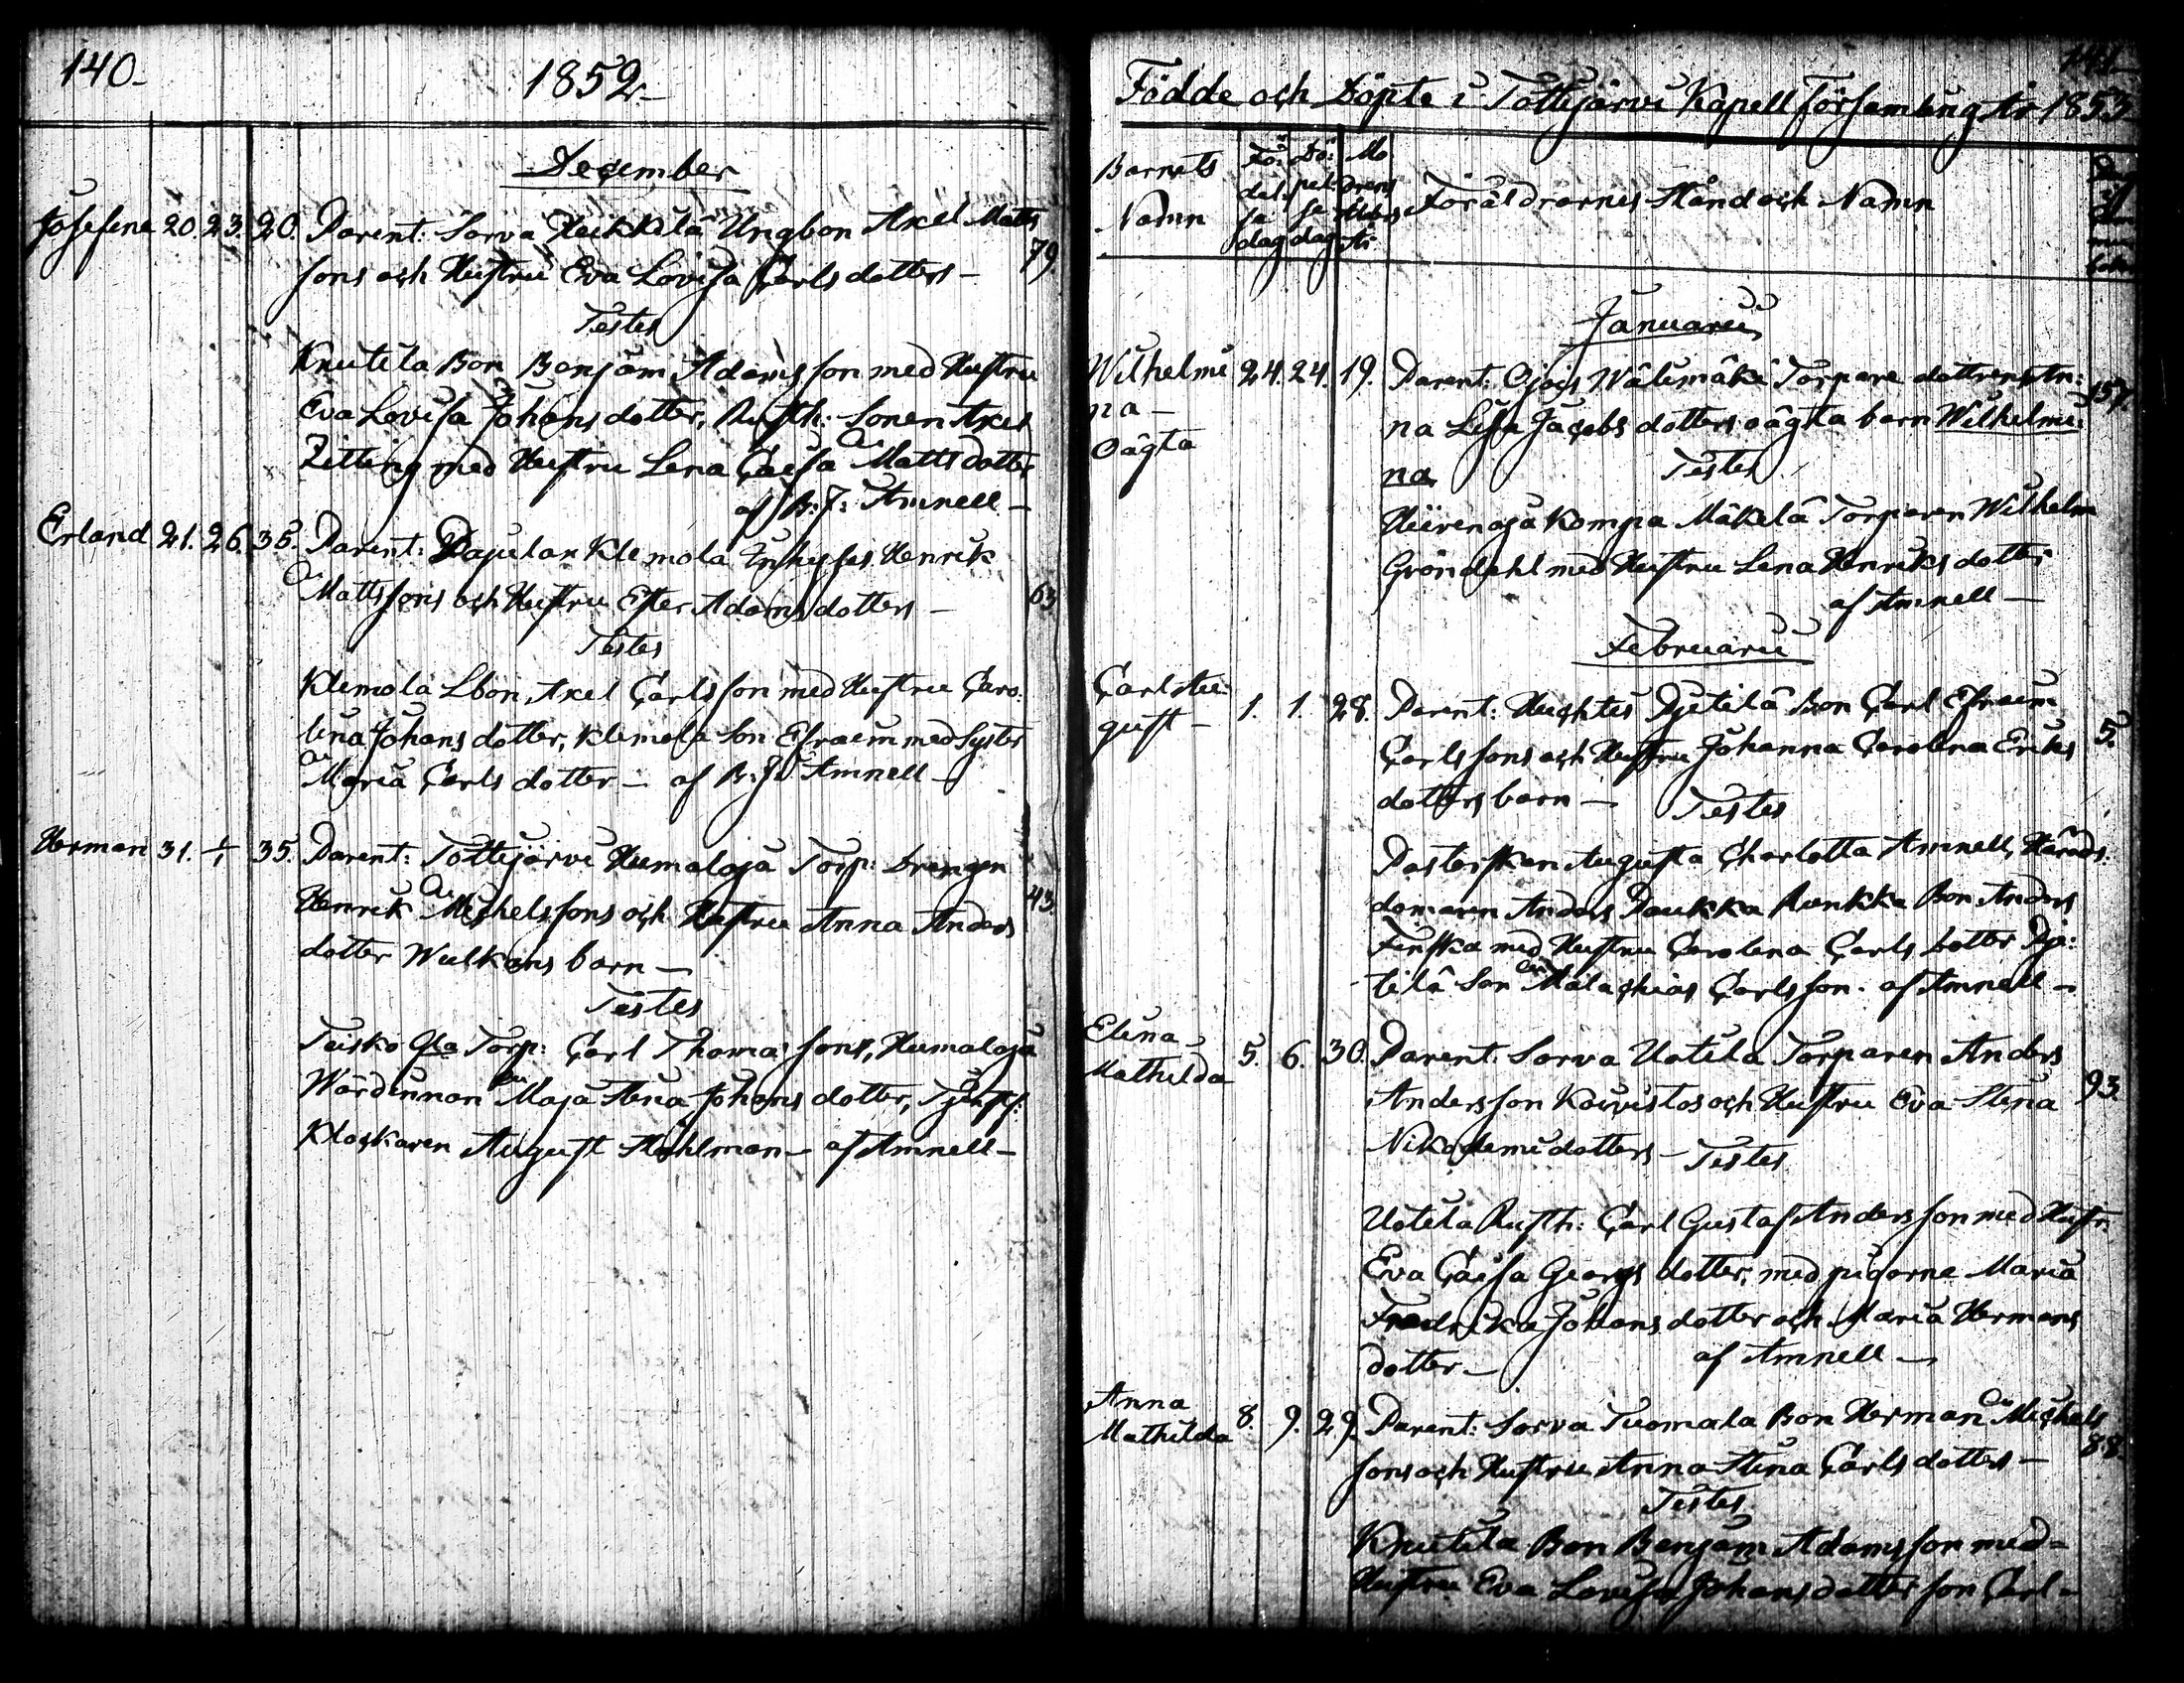 140-
1852-
December
Josefina 20. 23. 20. Parent: Sorva Heikkilä Ungbon Axel Matts 79.
sons och Hustru Eva Lovisa Carls dotters -
Testes
Knutila Bon Benjam Adamsson med Hustru
Eva Lovisa Johansdotter, Rusth: Sonen Axel
Zitting med Hustru Lena Caisa Mattsdotter
af B: J: Amnell -
Erland 21. 26. 35. Parent: Pajulax Klemola Inhyses Henrik
Mattssons och Hustru Ester Adamsdotters - 63
Testes
Klemola Lbon, Axel Carlsson med Hustru Caro:
lina Johansdotter, Klemola Son Efraim med Syster
Maria Carls dotter - af B. J: Amnell -
Herman 31. 1/1 35. Parent: Tottijärvi Humaloja Torp: Drengen
Henrik Michelssons och Hustru Anna Anders 43.
dotter Wulkans barn -
Testes
Teisko Torp: Carl Thomas sons, Humaloja
Wärdinnan Maja Stina Johans dotter, Tjenstf:
Klockaren August Ståhlman - af Amnell -
141-
Födde och Döpte i Tottijärvi Kapell Församling År 1853
Barnets Namn
Fö: del: se dag
Dö: pel: se dag
Mo drens Ålders År
Föräldrarnes Stånd och Namn
Januarii
Wilhelmi 24. 24. 19. Parent: Ojois Wälimäki Torpare dottren An: 157.
na - na Lisa Jacobs dotters oägta barn Wilhelmi:
oägta na Testes
Hiirenoja Kompa Mäkelä Torparen Wilhelm
Gröndahl med Hustru Lena Henriks dotter
af Amnell -
Februarii
Carl Au: 1. 1. 28. Parent: Huchtis Pjetilä Bon Carl Efraim
gust - Carlssons och Hustru Johanna Carolina Eriks 5.
dotters barn - Testes
Pastorskan Augusta Charlotta Amnell, Härads:
domaren Anders Paukka Runkka Bon Anders
Finska med Hustru Carolina Carls dotter Pje:
tilä Son Malachias Carlsson. af Amnell -
Elina 5. 6. 30. Parent: Sorva Uotila Torparen Anders
Mathilda Andersson Koivistos och Hustru Eva Stina 93.
Nikodemidotters - Testes
Uotila Rusth: Carl Gustaf Andersson med Hustr:
Eva Caisa Georgs dotter, med pigorna Maria
Fredrika Johans dotter och Maria Hermans
dotter - af Amnell -
Anna 8. 9. 29. Parent: Sorva Tuomala Bon Herman Michels
Mathilda sons och Hustru Anna Stina Carls dotters - 88.
Testes
Knutila Bon Benjam Adamsson med -
Hustru Eva Lovisa Johans dotter son Carl -